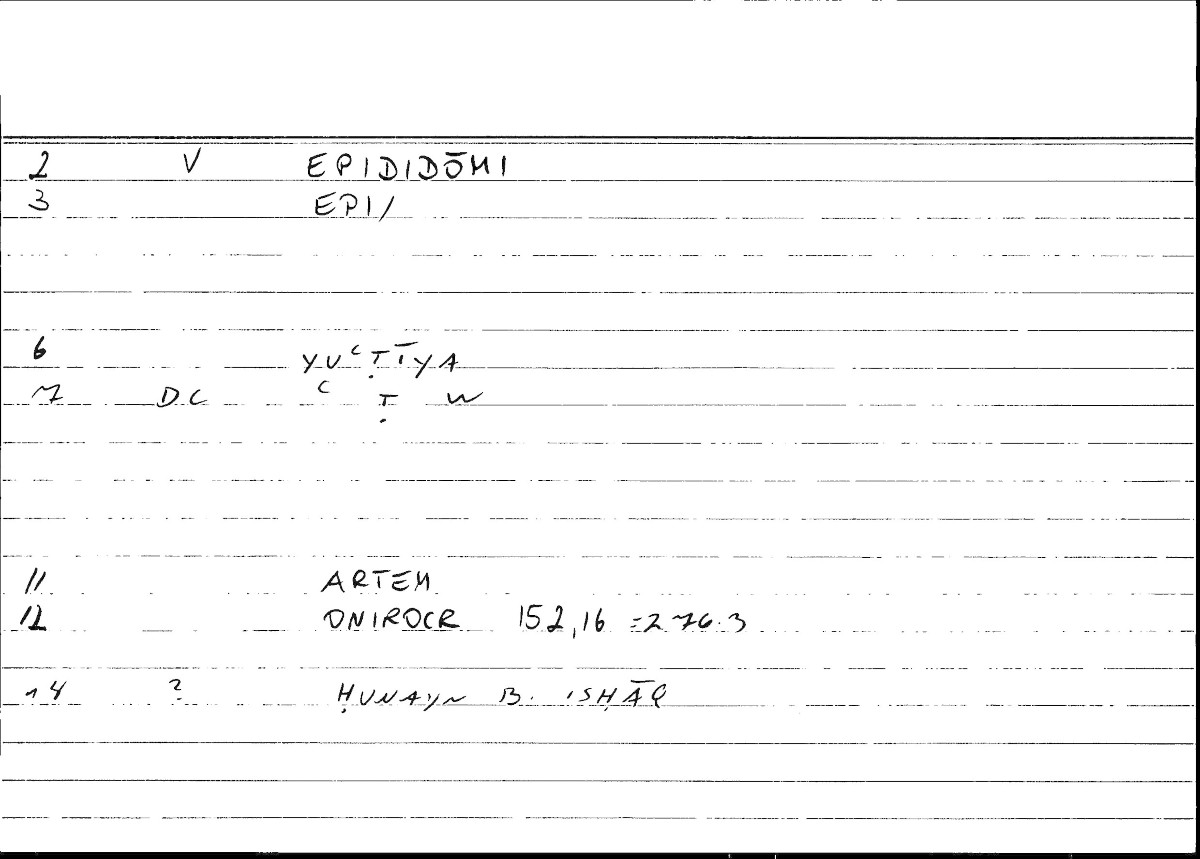 2 V EPIDIDŌMI
3 EPI/
6 YUᶜṬĪYA
7 DC ᶜ Ṭ W
11 ARTEM
12 ONIROCR 152,16 =276.3
14 ? ḤUNAYN B. ISḤĀQ